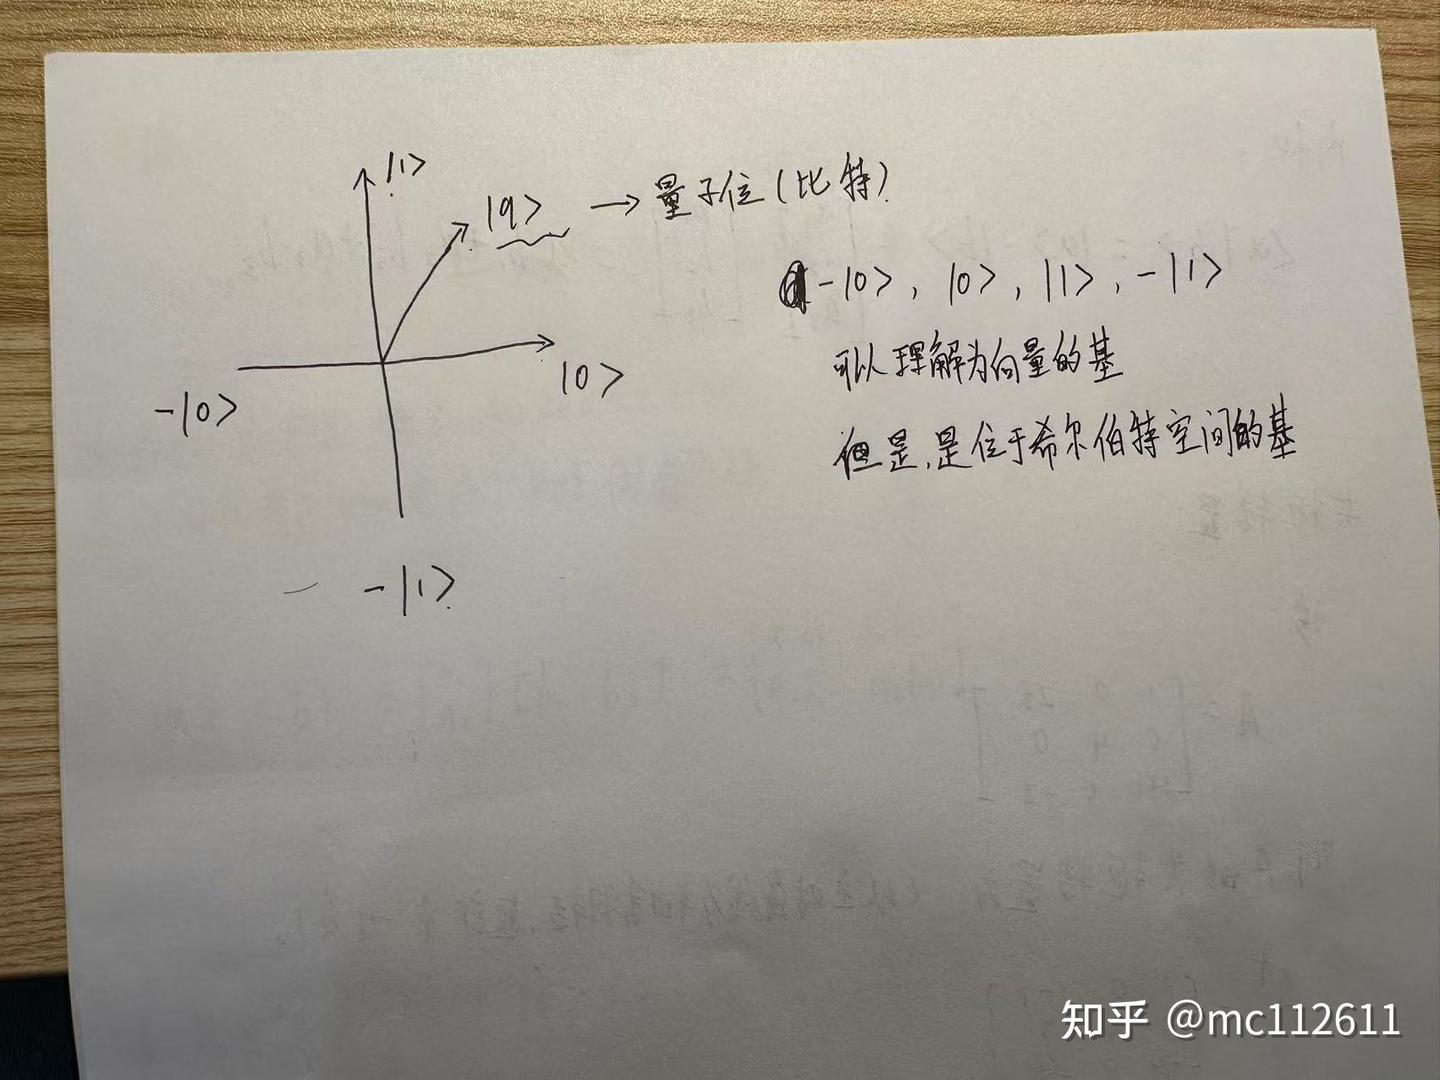 |1>
|q> → 量子位(比特)
-|0>, |0>, |1>, -|1>
可以理解为向量的基
|0>
-|0>
但是,是位于希尔伯特空间的基
-|1>
知乎 @mc112611